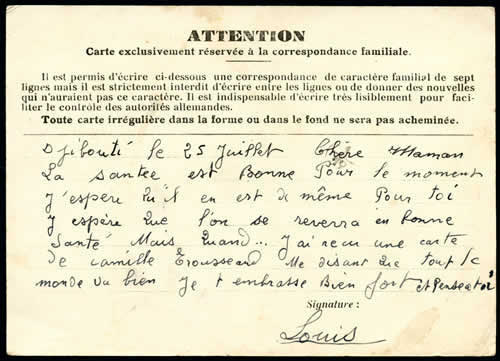 ATTENTION
Carte exclusivement réservée à la correspondance familiale.
Il est permis d'écrire ci-dessous une correspondance de caractère familial de sept
lignes mais il est strictement interdit d'écrire entre les lignes ou de donner des nouvelles
qui n'auraient pas ce caractère. Il est indispensable d'écrire très lisiblement pour faci-
liter le contrôle des autorités allemandes.
Toute carte irrégulière dans la forme ou dans le fond ne sera pas acheminée.
Djibouti le 25 Juillet Chère Maman
La santee est Bonne Pour le moment
J'espère qu'il en est de même Pour toi
J'espère que l'on se reverra en bonne
Santé Mais quand... J'ai recu une carte
de camille Trousseard Me disant que tout le
monde va bien Je t'embrasse Bien fort et Pense a toi
Signature :
Louis